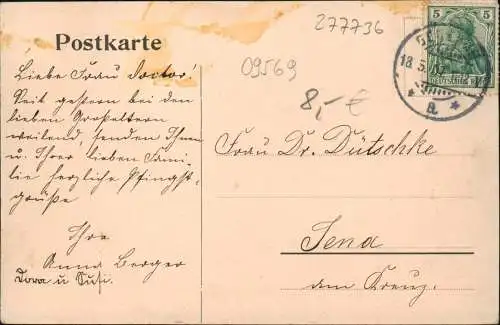 277736
Postkarte
09569
8,- €
5 5
DEUTSCHES REICH
18.5.
a.
Liebe Frau Doctor!
Seit gestern bei den
lieben Großeltern
weilend, senden Ihnen
u. Ihrer lieben Fami-
lie herzliche Pfingst-
grüße
Ihre
Anna Berger
Tora u Susi.
Frau Dr. Dütschke
Jena
am Kreuz.